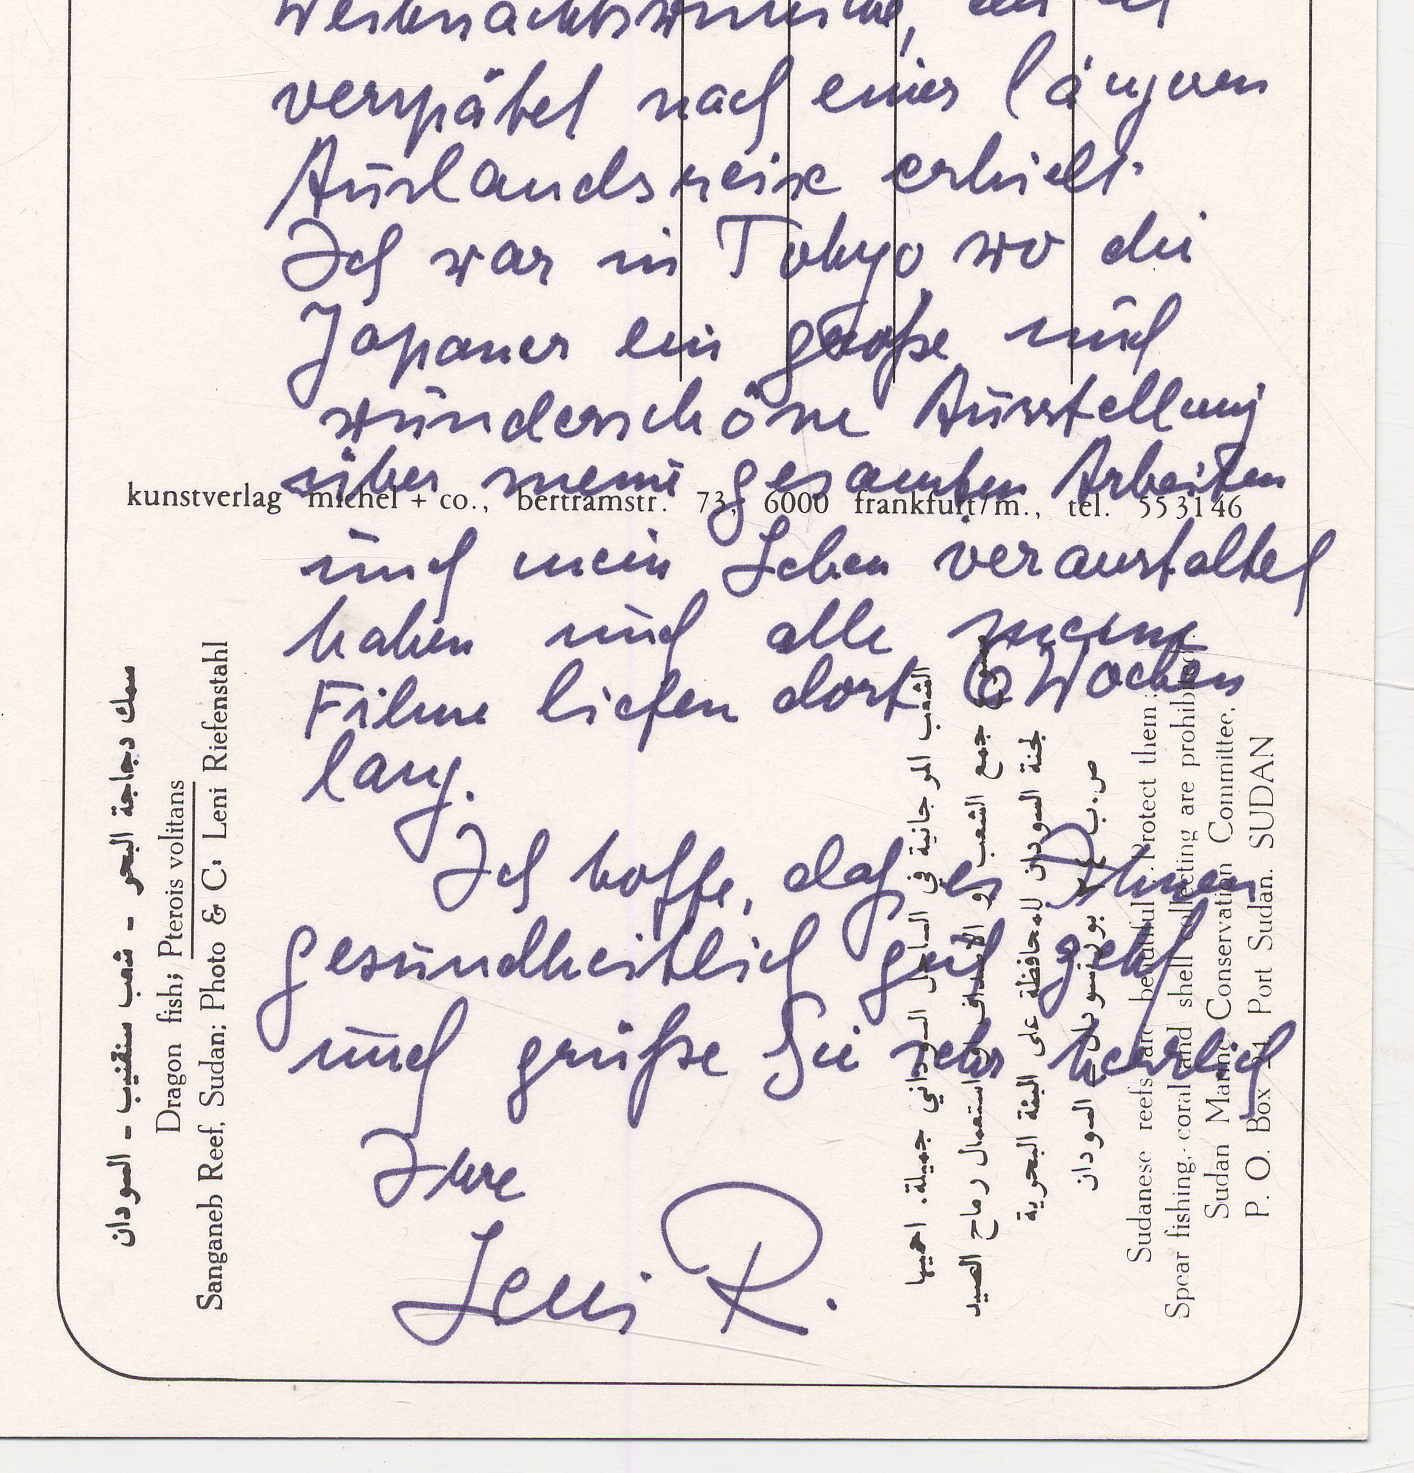 Weihnachtswünsche, die ich
verspätet nach einer längeren
Auslandsreise erhielt.
Ich war in Tokyo wo die
Japaner ein große und
wunderschöne Ausstellung
über meine gesamten Arbeiten
kunstverlag michel + co., bertramstr. 73, 6000 frankfurt/m., tel. 55 31 46
und mein Leben veranstaltet
haben und alle meine
Filme liefen dort 6 Wochen
lang.
Ich hoffe, daß es Ihnen
gesundheitlich gut geht
und grüße Sie sehr herzlich
Ihre
Leni R.
سمك دجاجة البحر - شعب سنقنيب - السودان
Dragon fish; Pterois volitans
Sanganeb Reef, Sudan; Photo & C: Leni Riefenstahl
الشعب المرجانية في الساحل السوداني جميلة. احميها
جمع الشعب أو الأصداف واستعمال رماح الصيد
لجنة السودان للمحافظة على البيئة البحرية
ص.ب بورتسودان - السودان
Sudanese reefs are beautiful. Protect them
Spear fishing, coral and shell collecting are prohibited
Sudan Marine Conservation Committee,
P. O. Box Port Sudan. SUDAN